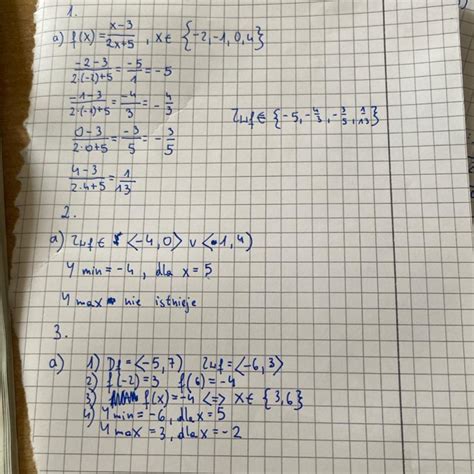 1.
a) f(x) = x-3/2x+5 , x ∈ {-2, -1, 0, 4}
-2-3/2·(-2)+5 = -5/1 = -5
-1-3/2·(-1)+5 = -4/3 = -4/3
0-3/2·0+5 = -3/5 = -3/5
Zwf ∈ {-5, -4/3, -3/5, 1/13}
4-3/2·4+5 = 1/13
2.
a) Zwf ∈ ⟨-4, 0⟩ ∨ ⟨1, 4)
y min = -4, dla x = 5
y max nie istnieje
3.
a) 1) Df = ⟨-5, 7) Zwf = ⟨-6, 3⟩
2) f(-2) = 3 f(6) = -4
3) f(x) = -4 <=> x ∈ {3, 6}
4) y min = -6, dla x = 5
y max = 3, dla x = -2